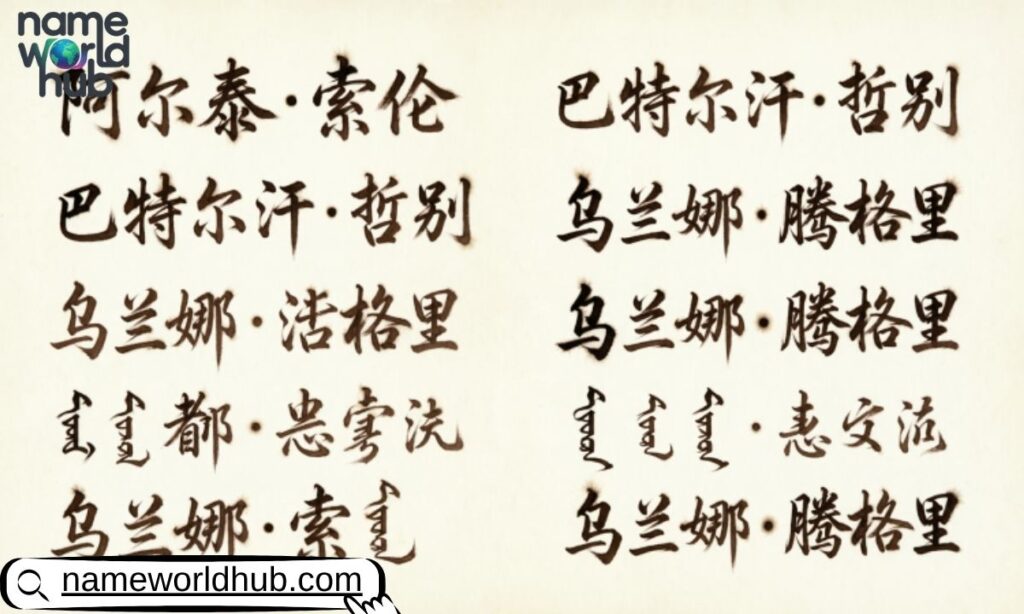 name
world
hub
阿尔泰·索伦
巴特尔汗·哲别
乌兰娜·格里
乌兰娜·索
巴特尔汗·哲别
乌兰娜·腾格里
乌兰娜·腾格里
乌兰娜·腾格里
nameworldhub.com